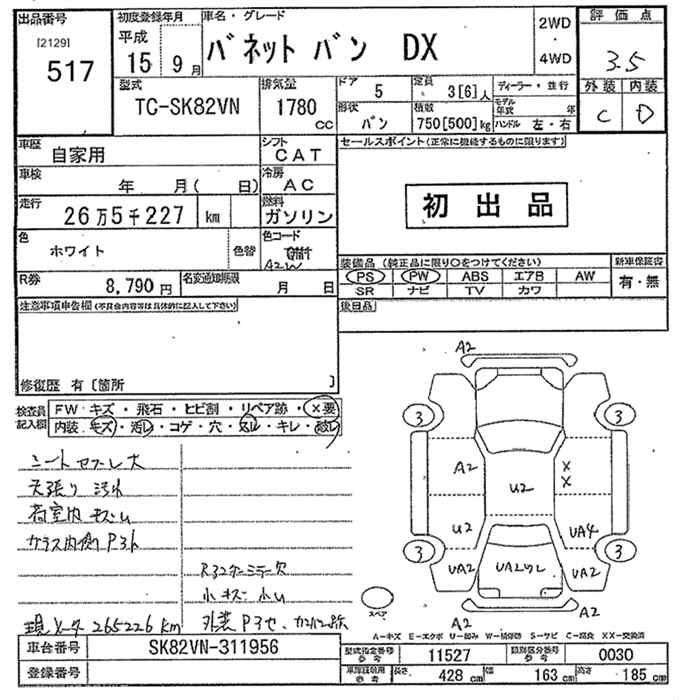 出品番号 初度登録年月 車名・グレード 2WD・4WD 評価点
[2129] 517 平成 15年 9月 バネット バン DX 3.5
型式 排気量 ドア 5 定員 3[6]人 ディーラー・並行 外装 内装
TC-SK82VN 1780 CC 形状 バン 積載 750[500]kg モデル年式 年 ハンドル 左・右 C D
車歴 自家用 シフト CAT セールスポイント(正常に機能するものに限ります)
車検 年 月( 日) 冷房 AC
初出品
走行 26万5千227 km 燃料 ガソリン
色 ホワイト 色替 色コード A2W
装備品(純正品に限り○をつけてください) 新車保証書
R券 8,790円 名変通知期限 月 日 PS PW ABS エアB AW 有・無
SR ナビ TV カワ
注意事項申告欄(不具合内容等は具体的に記入して下さい) 後日品
修復歴 有 [箇所 ]
検査員記入欄 FW キズ・飛石・ヒビ割・リペア跡・X要
内装 キズ・汚レ・コゲ・穴・スレ・キレ・破レ
シートセブレ大
天張り 汚れ
荷室内 キズU
ガラス内側 P3ト
小キズ 小U
現メータ 265226km
A2
3 3
A2 X
X
U2
U2 UA4
3 3
UA2 UA2 UA2
A2 A2
スペア
A-キズ E-エクボ U-凹み W-補修跡 S-サビ C-腐食 XX-交換済
車台番号 SK82VN-311956 型式指定番号 参考 11527 類別区分番号 参考 0030
登録番号 車庫証明用 参考 長さ 428 cm 幅 163 cm 高さ 185 cm